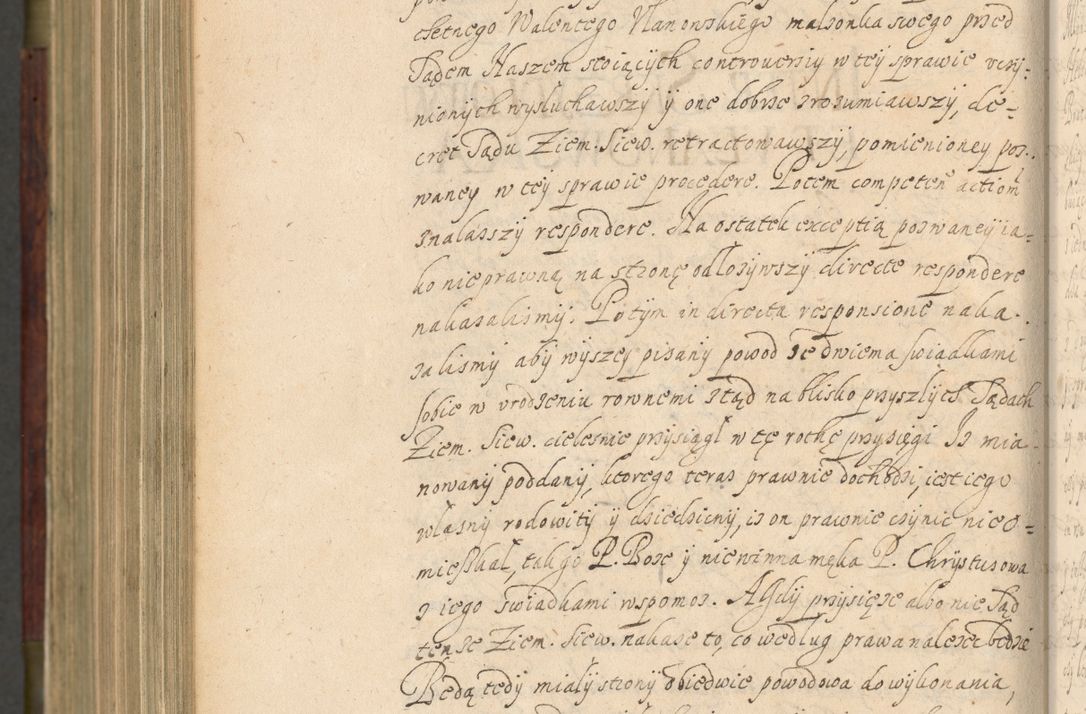 cħetnego Walentego Nlanowskiego małzonka swego przed
Sądem Naszem stoiących controversiy w tey sprawie vczy-
nionych wysłuchawszy ÿ one dobrze zrozumiawszy, de-
cret Sądu Ziem. Siew. retractowawszy, pomienioney poz-
waney w tey sprawie procedere. Potem competeñ actiom
znalazszy respondere. Na ostatek exceptią pozwaney ia-
ko nieprawną na stronę odłożywszy directe respondere
nakazalismy. Potym in directa responsione naka-
zalismy aby wyszey pisany powod ze dwiema swiadkami
sobie w vrodzeniu rownemi ztąd na blisko przyszłych Sądach
Ziem. Siew. cielesnie przysiągł w tę rothę przysięgi Iz mia-
nowany poddany, ktorego teraz prawnie dochodzi, iest iego
własny rodowity ÿ dziedziczny, iz on prawnie czynic nie o-
mieszkał, tak go P. Boze y niewinna męka P. Chrystusowa
z iego swiadkami wspomoz. A Gdy przysięze albo nie Sąd
tenze Ziem. Siew. nakaze to, co według prawa nalezec będzie
Będą tedy miały strony obiedwie powodowa do wykonania,